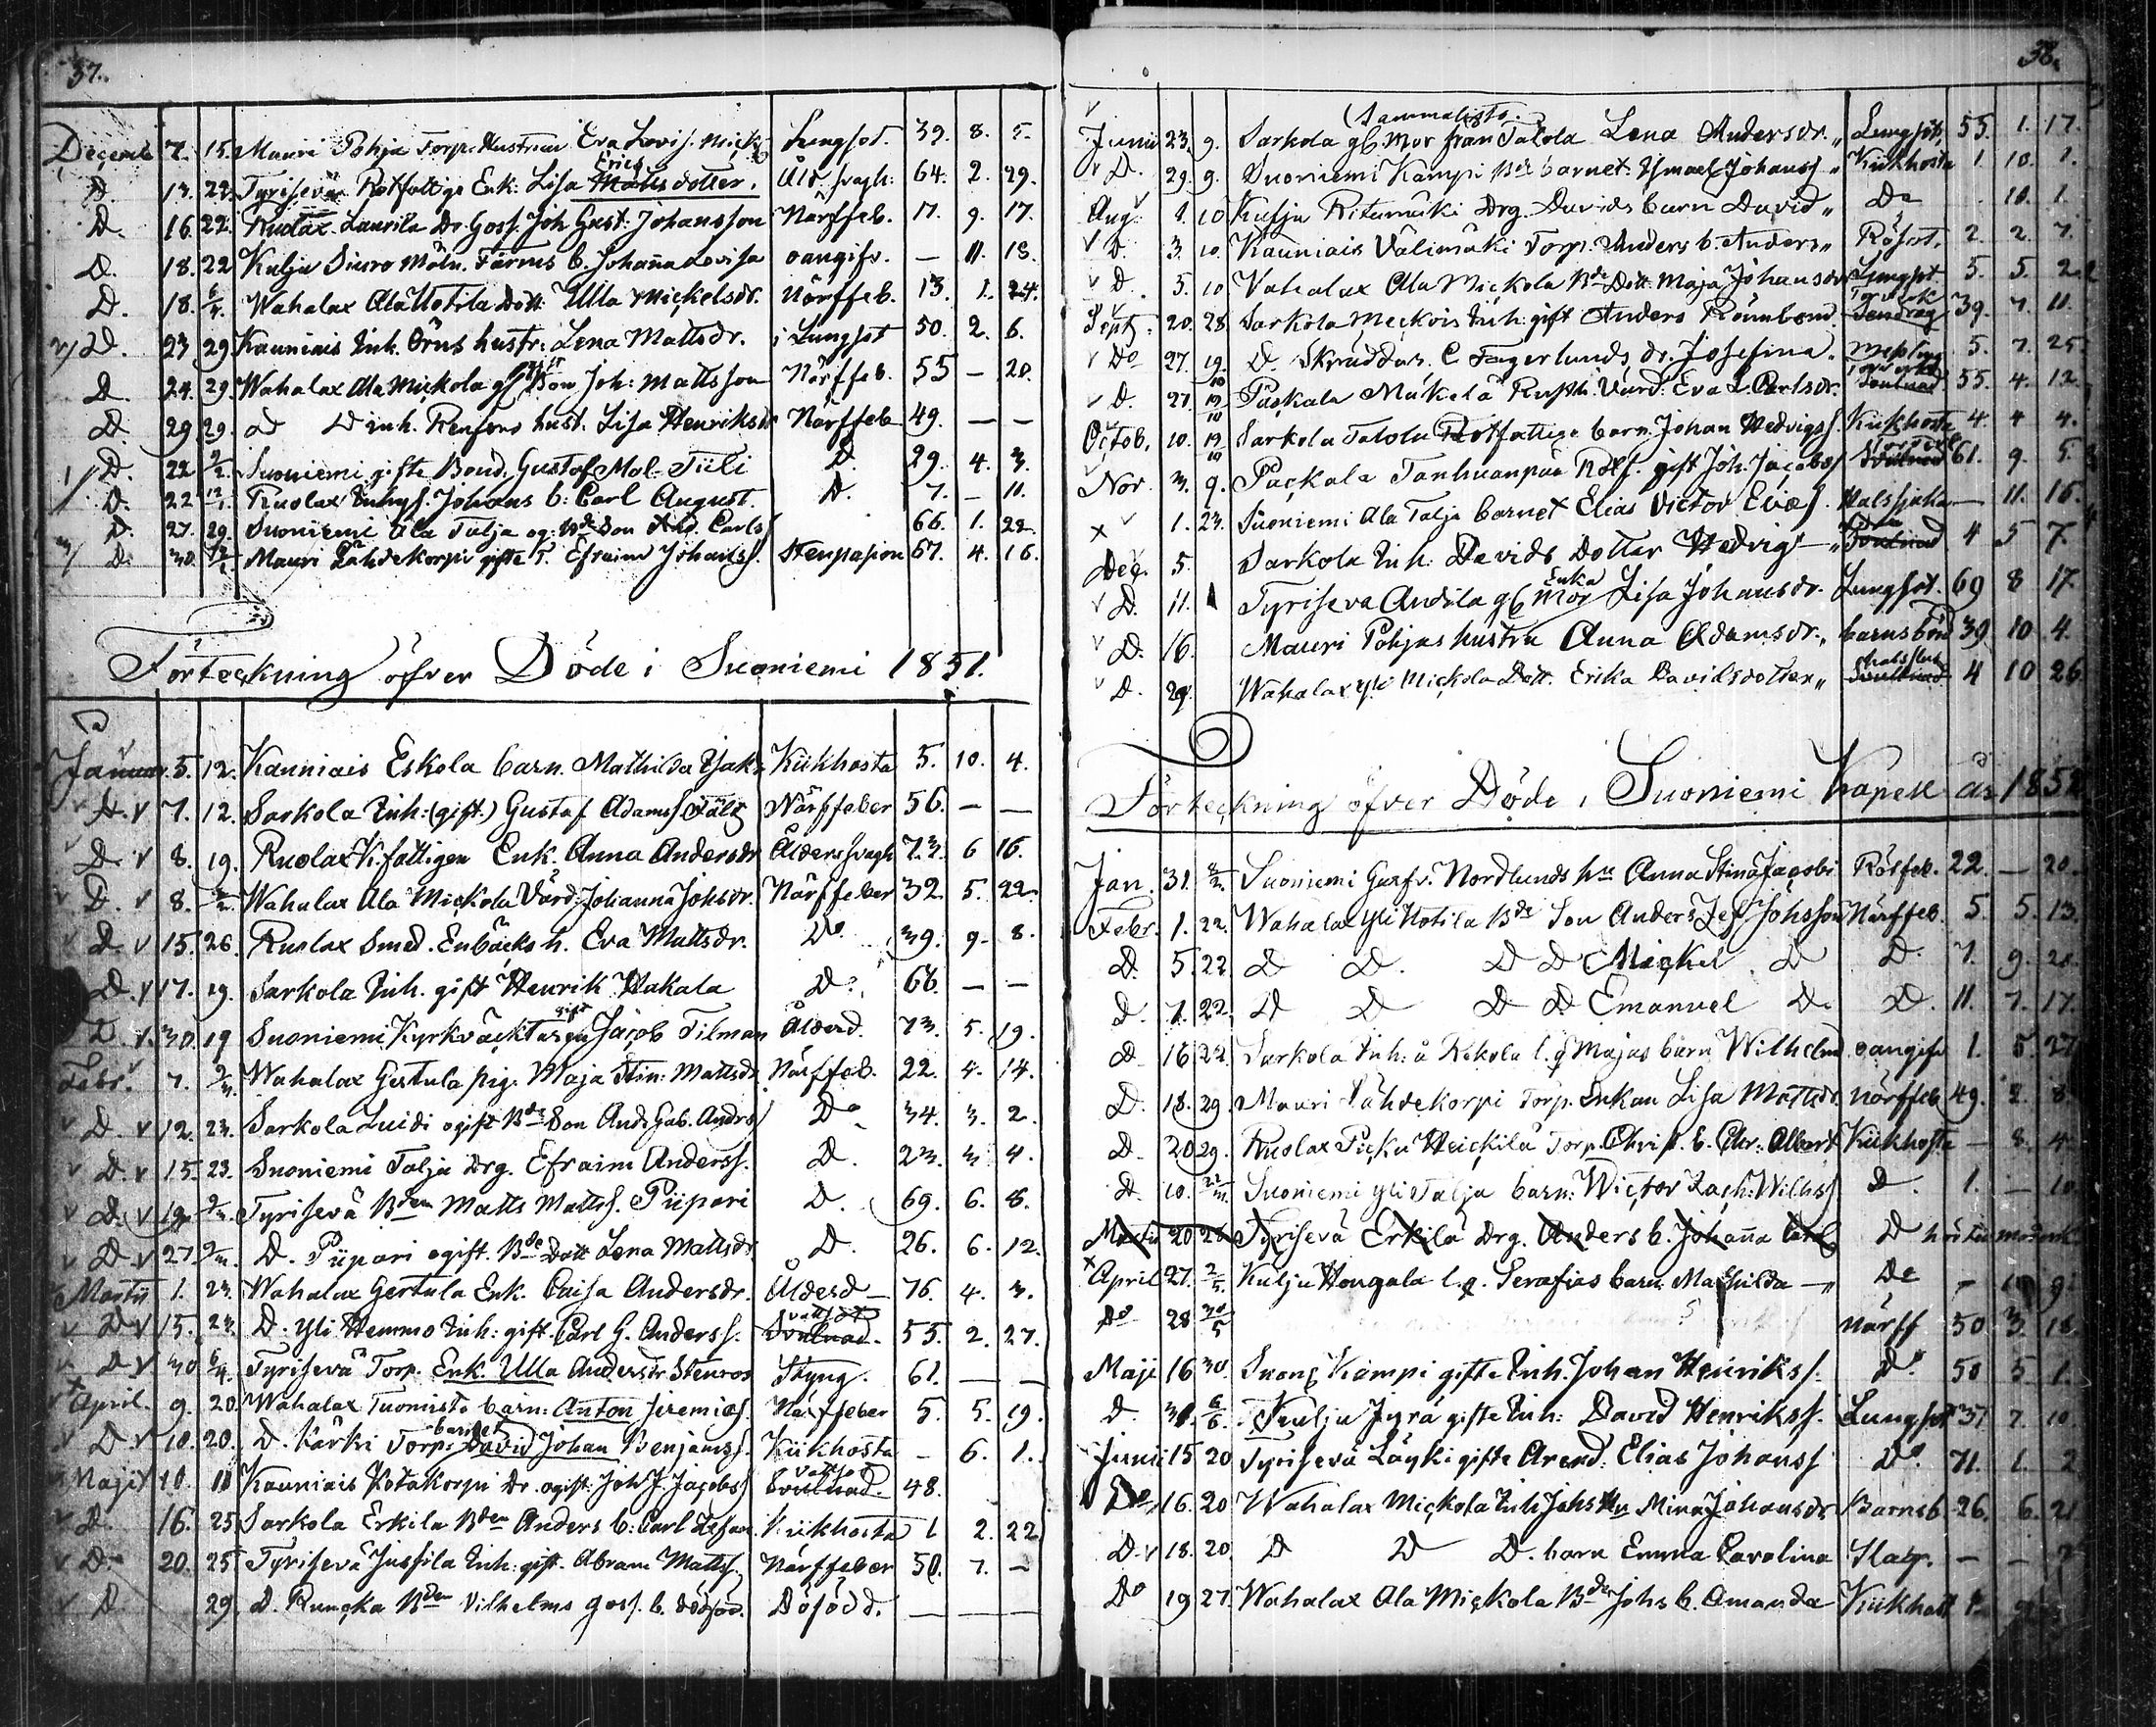 37.
Decemb 7. 15. Mauri Pohja Torp. Hustrun Eva Lovis. Mick Lungsot. 39. 8. 5.
D. 13. 22. Tyrisevä Rotfattige Enk: Lisa Erics Matts dotter. Åld. svagh: 64. 2. 29.
D. 16. 22. Ruolax Laurila Dr. Goss. Joh Gust: Johansson Närffeb. 17. 9. 17.
D. 18. 22 Kulju Siuro Möln. Färms b. Johanna Lovisa oangifv. — 11. 13.
D. 18. 6/1. Wahalax Ala Uotila Dott Ulla Mickelsdr. Närffeb. 13. 1. 24.
D. 23 29 Kauniais Inh. Örns hustr: Lena Mattsdr. Lungsot 50. 2. 6.
D 24. 29. Wahalax Ala Mickola Son Joh: Mattsson Närffeb. 55 — 20.
D. 29 29. D D inh. hust. Lisa Henriksdr Närffeb. 49. — —
D. 22 2/2. Suoniemi gifte Bond. Gustaf Mol- Tiili D. 29. 4. 3.
D. 22 12/1. Ruolax Inhys. Johans b: Carl August. D. 7. — 11.
D. 27. 29. Suoniemi Ala Talja og: Bde Son And. Carls 66. 1. 22.
D. 30. 12/1. Mauri Lähdekorpi gifte T. Efraim Johanss. Stenpasion 67. 4. 16.
Förteckning öfver Döde i Suoniemi 1851.
Januar. 5. 12. Kauniais Eskola barn. Mathilda Isaks Kikhosta 5. 10. 4.
D. v 7. 12. Sarkola Inh: (gift.) Gustaf Adamss. Fält Närffeber 56. — —
D. v 8. 19. Ruolax K. fattigen Enk. Anna Andersdr Ålderssvagh 73. 6 16.
D. v 8. 2/2. Wahalax Ala Mickola Värd. Johanna Johsdr. Närffeber 32. 5. 22.
D. v 15. 26. Ruolax Smed. Enbäcks h. Eva Mattsdr. Do 39. 9. 8.
D. v 17. 19. Sarkola Inh. gift Henrik Hakala D. 66. — —
D. v. 30. 19 Suoniemi Kyrkväcktaren gift Jacob Tilman Ålderd. 73. 5. 19.
Febr. 7. Wahalax Gertula pig. Maja Stin: Mattsdr Närffeb. 22. 4. 14.
D. v 12. 23. Sarkola Luidi ogift Bde Son And: Gab. Anders Do 34. 3. 2.
D. v 15. 23. Suoniemi Talja Drg. Efraim Anderss. D. 23. 3 4.
D. v 19. Tyrisevä Bden Matts Mattss. Piipari D. 69. 6. 8.
D. v 27. D. Piipari ogift. Bde Dott Lena Mattsdr D. 26. 6. 12.
Martii 1. 23. Wahalax Gertula Enk. Caisa Andersdr. Ålderd — 76. 4. 3.
D v 15. 23. D. Yli Hemmo Inh: gift. Carl G. Anderss. Svulnad. 55. 2. 27.
D v 30 6/4. Tyrisevä Torp. Enk. Ulla Andersdr Stenroos Styng. 61. — —
April. 9. 20. Wahalax Tuomisto barn: Anton Jeremias. Närffeber 5. 5. 19.
D v 10. 20. D. Kärki Torps barnet David Johan Benjamss. Kikhosta — 6. 1.
Maji 10. 11 Kauniais Kotakorpi Dr. ogift: Joh J. Jacobss Svulnad. 48.
D. 16. 25 Sarkola Erkila Bden Anders b: Carl Kikhosta 1 2. 22
D. 20. 25 Tyrisevä Jussila Inh: gift. Abram Mattss. Närffeber 50. 7. —
D 29. D. Runcka Bden Vilhelms goss. b. dödfödd. Dödfödd. — — —
38.
Junii 23. 9. Sarkola gl. Mor från (Sammalisto.) Talola Lena Andersdr. „ Lungsot, 55. 1. 17.
D. 29. 9. Suoniemi Kämpi Bde barnet: Ismael Johanss „ Kikhosta 1. 10. 1.
Aug. 1. 10 Kulju Ritumäki Drg. Davids barn David „ Do 10. 1.
D. 3. 10. Kauniais Välimäki Torp. Anders b. Anders „ Rödsot. 2. 2. 7.
D. 5. 10 Vahalax Ala Mickola Bde Dott. Maja Johansdr Lungsot. 5. 5. 22
Septb. 20. 28 Sarkola Meckois Inh: gift Anders 39. 7. 11.
Do 27. 19. D. Skräddar. C Fagerlunds dr. Josefina. 5. 7. 25
D. 27. 19/10 Packala Mäkelä Rusth: Värd: Eva L. Carlsdr. 55. 4. 12.
Octob. 10. 19/10 Sarkola Talola Rotfattige barn. Johan Hedvigs. Kikhosta 4. 4 4.
Nov. 3. 9. Packala Tanhuanpää Rotf. gift Joh. Jacobss 61. 9. 5.
1. 23. Suoniemi Ala Talja barnet Elias Victor Halssjuka — 11. 16.
Dec. 5. Sarkola Inh: Davids Dotter Hedvig — „ 4 5 7.
D. 11. Tyrisevä Andila gl. Mor Enka Lisa Johansdr. Lungsot. 69 8 17.
D. 16. Mauri Pohjas hustru Anna Adamsdr. „ barnsbörd 39. 10 4.
D. 29. Wahalax Yli Mickola Dott. Erika Davidsdotter „ 4 10 26
Förteckning öfver Döde i Suoniemi Kapell år 1852
Jan. 31. 8/2. Suoniemi Garfv. Nordlunds hu Anna Stina Jacobi Rötfeb. 22. — 20
Febr. 1. 22. Wahalax Yli Uotila Bde Son Anders Johsson Närffeb. 5 5. 13.
D. 5. 22 D D. D D Mickel D D. 7. 9. 21.
D. 7. 22. D D D D Emanuel D. D. 11. 7. 17.
D. 16 22. Sarkola Inh: å Kekola l. q Majas barn Wilhelm oangifv 1. 5 27
D. 18. 29. Mauri Lähdekorpi Torp. Enkan Lisa Mattsdr. Närffeb. 49. 2. 8.
D. 20 29. Ruolax Picku Heickilä Torp. Christ. b. Chr: Albert Kikhosta — 8. 4.
D. 10. Suoniemi Yli Talja barn: Wictor Zach: Wilhss D. 1. — 10
Martii 20 28 Tyrisevä Erkilä Drg. Anders b. Johanna D
April 27. 2/5. Kulju Hongala l. q. Serafias barn Mathilda — „ Do — 9
Do 28 30/5 Närff 50 3. 18
Maji 16 30. Suon: Kämpi gifte Inh. Johan Henrikss. Do 50 5 1.
D. 31. 6/6. Kulju Jyrä gifte Inh: David Henrikss. Lungsot 37 7. 10
Junii 15 20 Tyrisevä Läyki gifte Arend. Elias Johanss Do. 71. 1. 2
Do 16. 20 Wahalax Mickola Inh Johs Hu Mina Johansdr Barnsb. 26. 6. 21
D. v 18. 20. D D D. barn Emma Carolina Slag. — — 7
Do 19 27. Wahalax Ala Mickola Bde Johs b. Amanda Kikhost